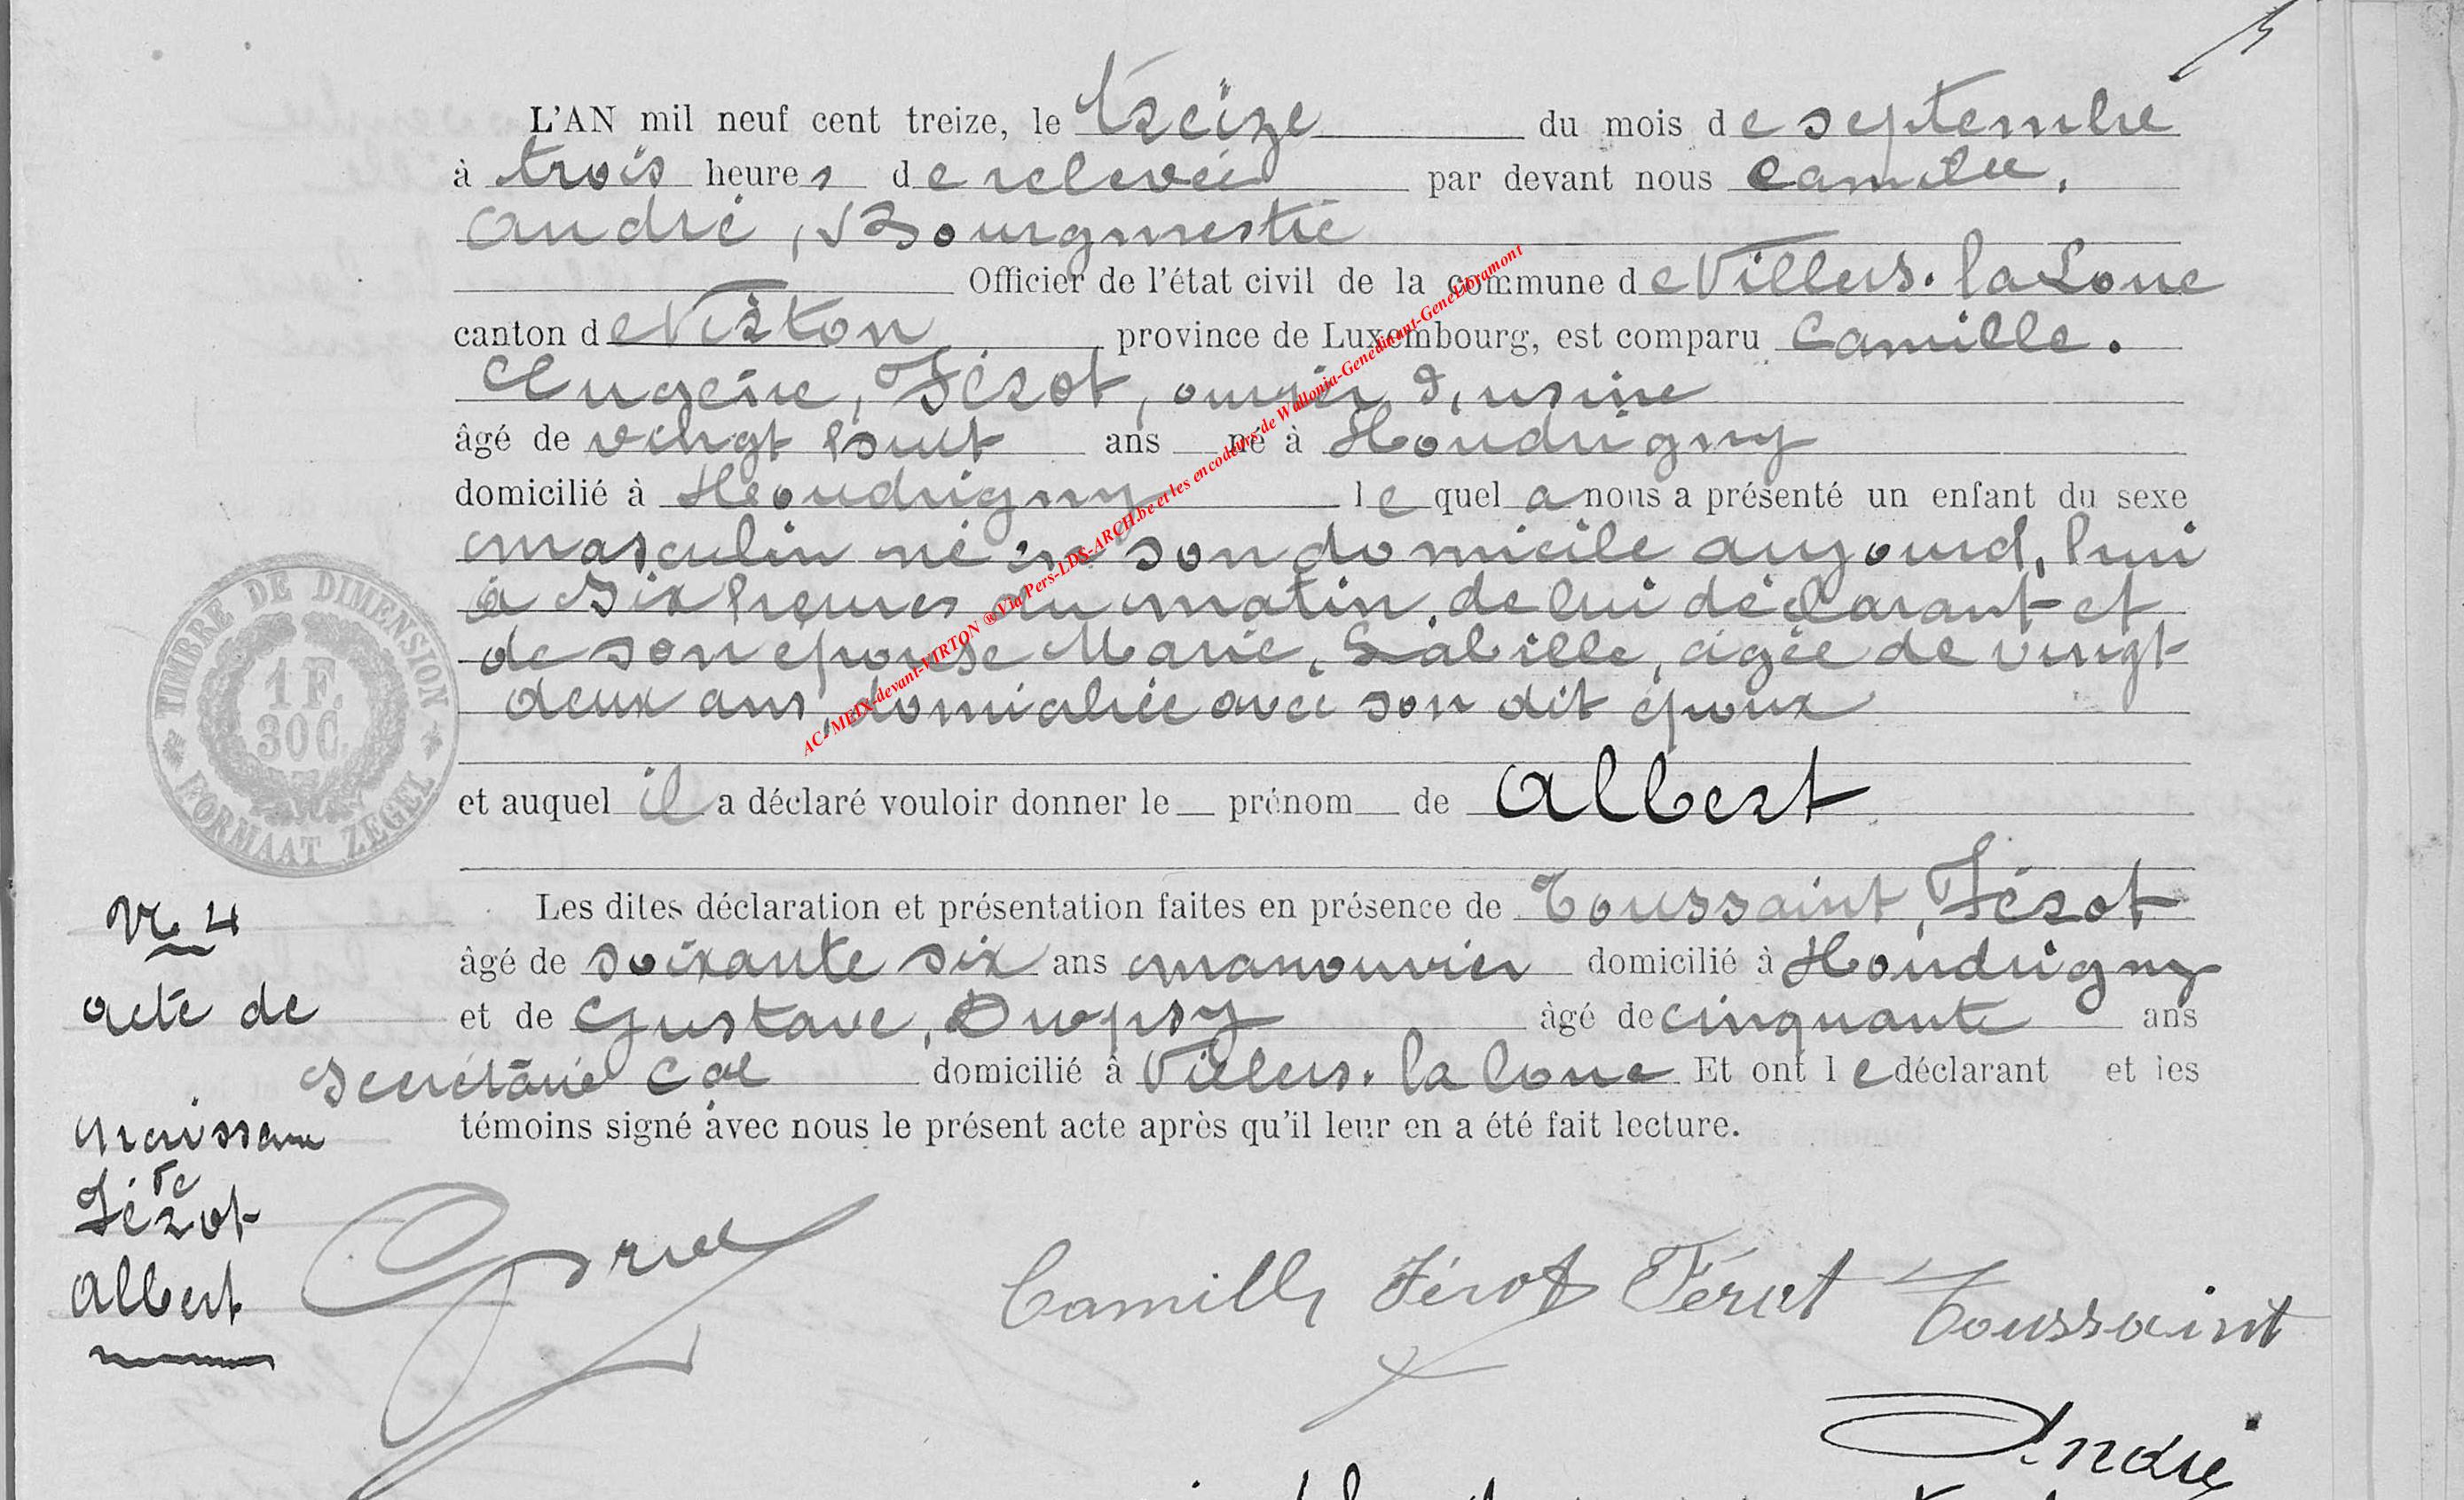 L'AN mil neuf cent treize, le treize du mois de septembre
à trois heures de relevée par devant nous Camille,
André, Bourgmestre
Officier de l'état civil de la commune de Villers-la Loue
canton de Virton province de Luxembourg, est comparu Camille.
Eugène, Férot, ouvrier d'usine
âgé de vingt huit ans né à Houdrigny
domicilié à Houdrigny lequel a nous a présenté un enfant du sexe
masculin né en son domicile aujourd'hui
à six heures du matin, de lui déclarant et
de son épouse Marie, Labille, âgée de vingt
deux ans, domiciliée avec son dit époux
et auquel il a déclaré vouloir donner le prénom de Albert
Les dites déclaration et présentation faites en présence de Toussaint, Férot
âgé de soixante six ans manouvrier domicilié à Houdrigny
et de Gustave, âgé de cinquante ans
secrétaire cal domicilié à Villers-la loue Et ont le déclarant et les
témoins signé avec nous le présent acte après qu'il leur en a été fait lecture.
TIMBRE DE DIMENSION
1 F.
30 C.
FORMAAT ZEGEL
N 4
acte de
naissance
de
Férot
Albert
Camille Férot Férot Toussaint
André
AC-MEIX-devant-VIRTON ® Via Pers-LDS-ARCH.be et les encodeurs de Wallonia-Genedinant-GeneLibramont